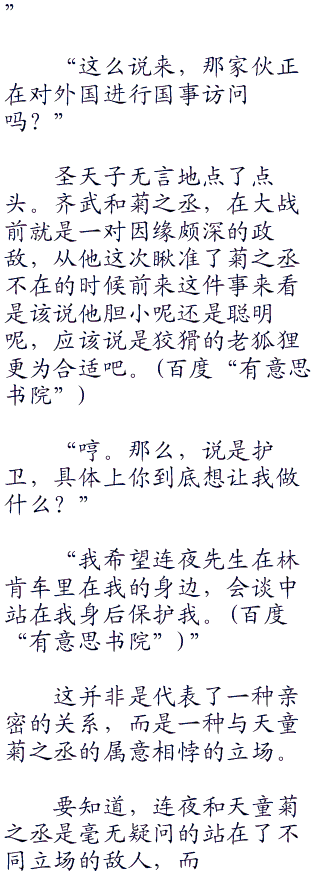 ”
“这么说来，那家伙正
在对外国进行国事访问
吗？”
圣天子无言地点了点
头。齐武和菊之丞，在大战
前就是一对因缘颇深的政
敌，从他这次瞅准了菊之丞
不在的时候前来这件事来看
是该说他胆小呢还是聪明
呢，应该说是狡猾的老狐狸
更为合适吧。(百度“有意思
书院”)
“哼。那么，说是护
卫，具体上你到底想让我做
什么？”
“我希望连夜先生在林
肯车里在我的身边，会谈中
站在我身后保护我。(百度
“有意思书院”)”
这并非是代表了一种亲
密的关系，而是一种与天童
菊之丞的属意相悖的立场。
要知道，连夜和天童菊
之丞是毫无疑问的站在了不
同立场的敌人，而